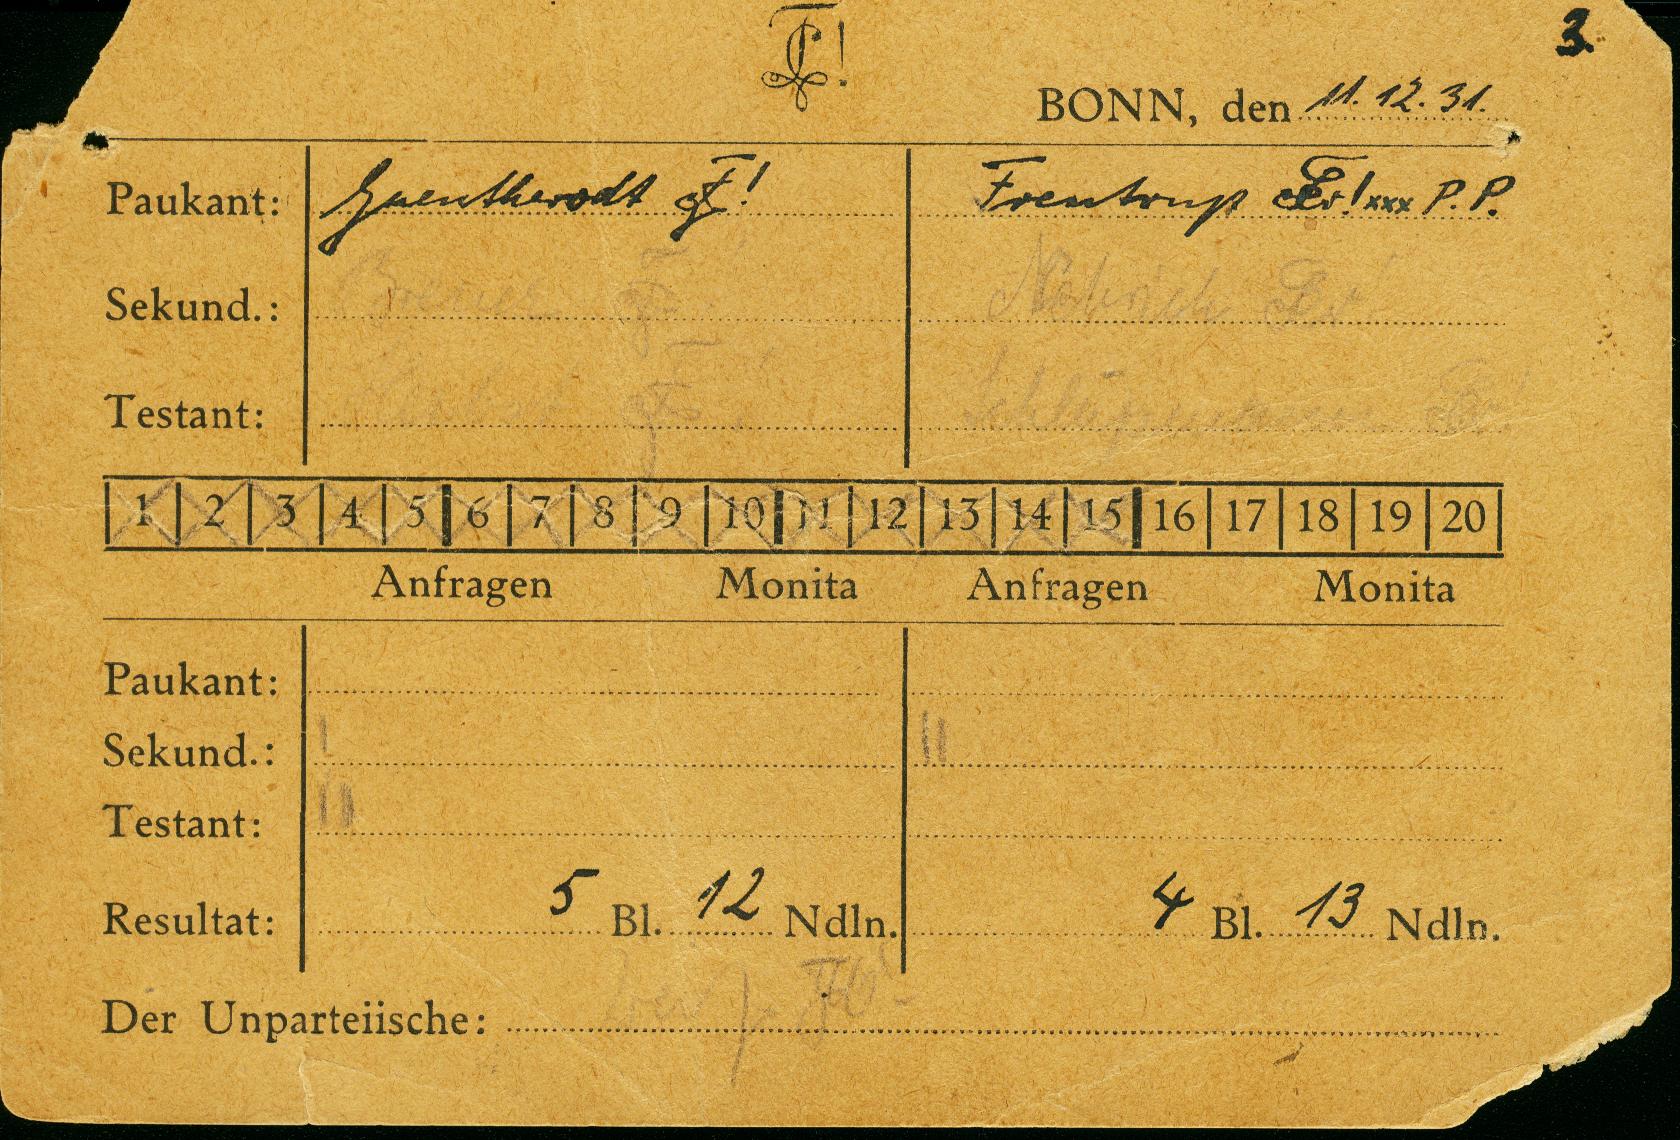 3.
BONN, den 11.12.31.
Paukant: Guentherodt ! Frentrup ! xxx P.P.
Sekund.:
Testant:
1 2 3 4 5 6 7 8 9 10 11 12 13 14 15 16 17 18 19 20
Anfragen Monita Anfragen Monita
Paukant:
Sekund.: I II
Testant: II
Resultat: 5 Bl. 12 Ndln. 4 Bl. 13 Ndln.
Der Unparteiische: